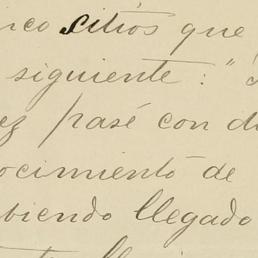 inco sitios que
siguiente: "
ez pasé con d
ocimiento de
biendo llegado